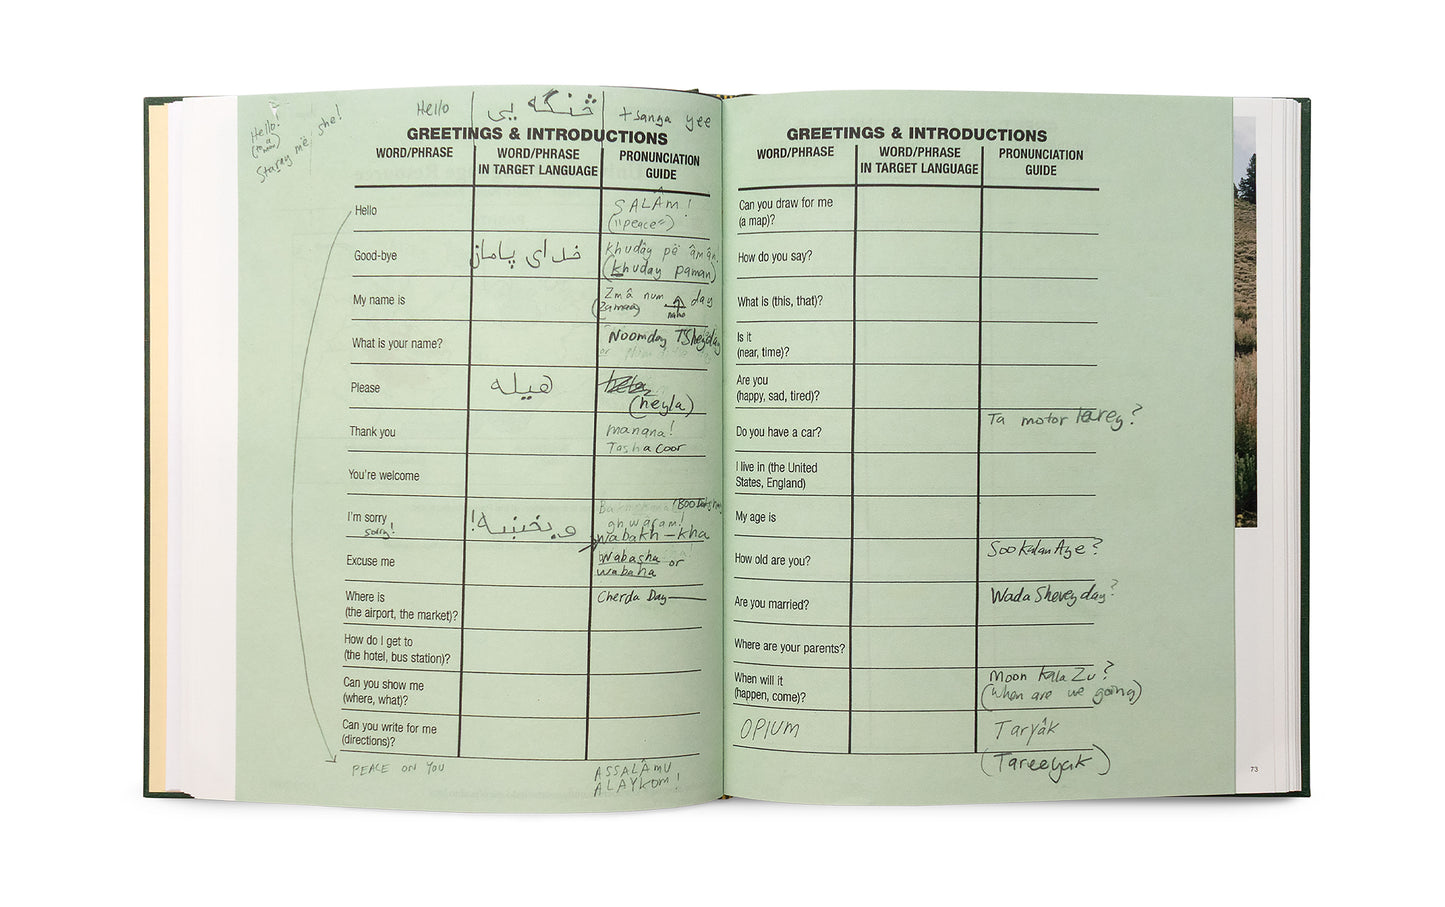 Hello
څنګه یی
tsanga yee
Hello.
(to a man)
Staray mē she!
GREETINGS & INTRODUCTIONS
WORD/PHRASE
WORD/PHRASE
IN TARGET LANGUAGE
PRONUNCIATION
GUIDE
Hello
SALÂM!
("peace")
Good-bye
خدای پامان
khudây pë âmân!
(khuday paman)
My name is
Zmâ num day
(Zamaa)
What is your name?
Noomday TSheyday
Please
هیله
(heyla)
Thank you
manana!
Tashacoor
You're welcome
I'm sorry
sorry!
وبخښه!
ghwâram!
wabakh-kha
Excuse me
Wabasha or
wabaha
Where is
(the airport, the market)?
Cherda Day
How do I get to
(the hotel, bus station)?
Can you show me
(where, what)?
Can you write for me
(directions)?
PEACE ON YOU
ASSALÂMU
ALAYKOM!
GREETINGS & INTRODUCTIONS
WORD/PHRASE
WORD/PHRASE
IN TARGET LANGUAGE
PRONUNCIATION
GUIDE
Can you draw for me
(a map)?
How do you say?
What is (this, that)?
Is it
(near, time)?
Are you
(happy, sad, tired)?
Do you have a car?
Ta motor larey?
I live in (the United
States, England)
My age is
How old are you?
Soo Kalan Aye?
Are you married?
Wada Shavey day?
Where are your parents?
When will it
(happen, come)?
Moon Kala Zu?
(when are we going)
OPIUM
Taryâk
(Tareeyak)
73